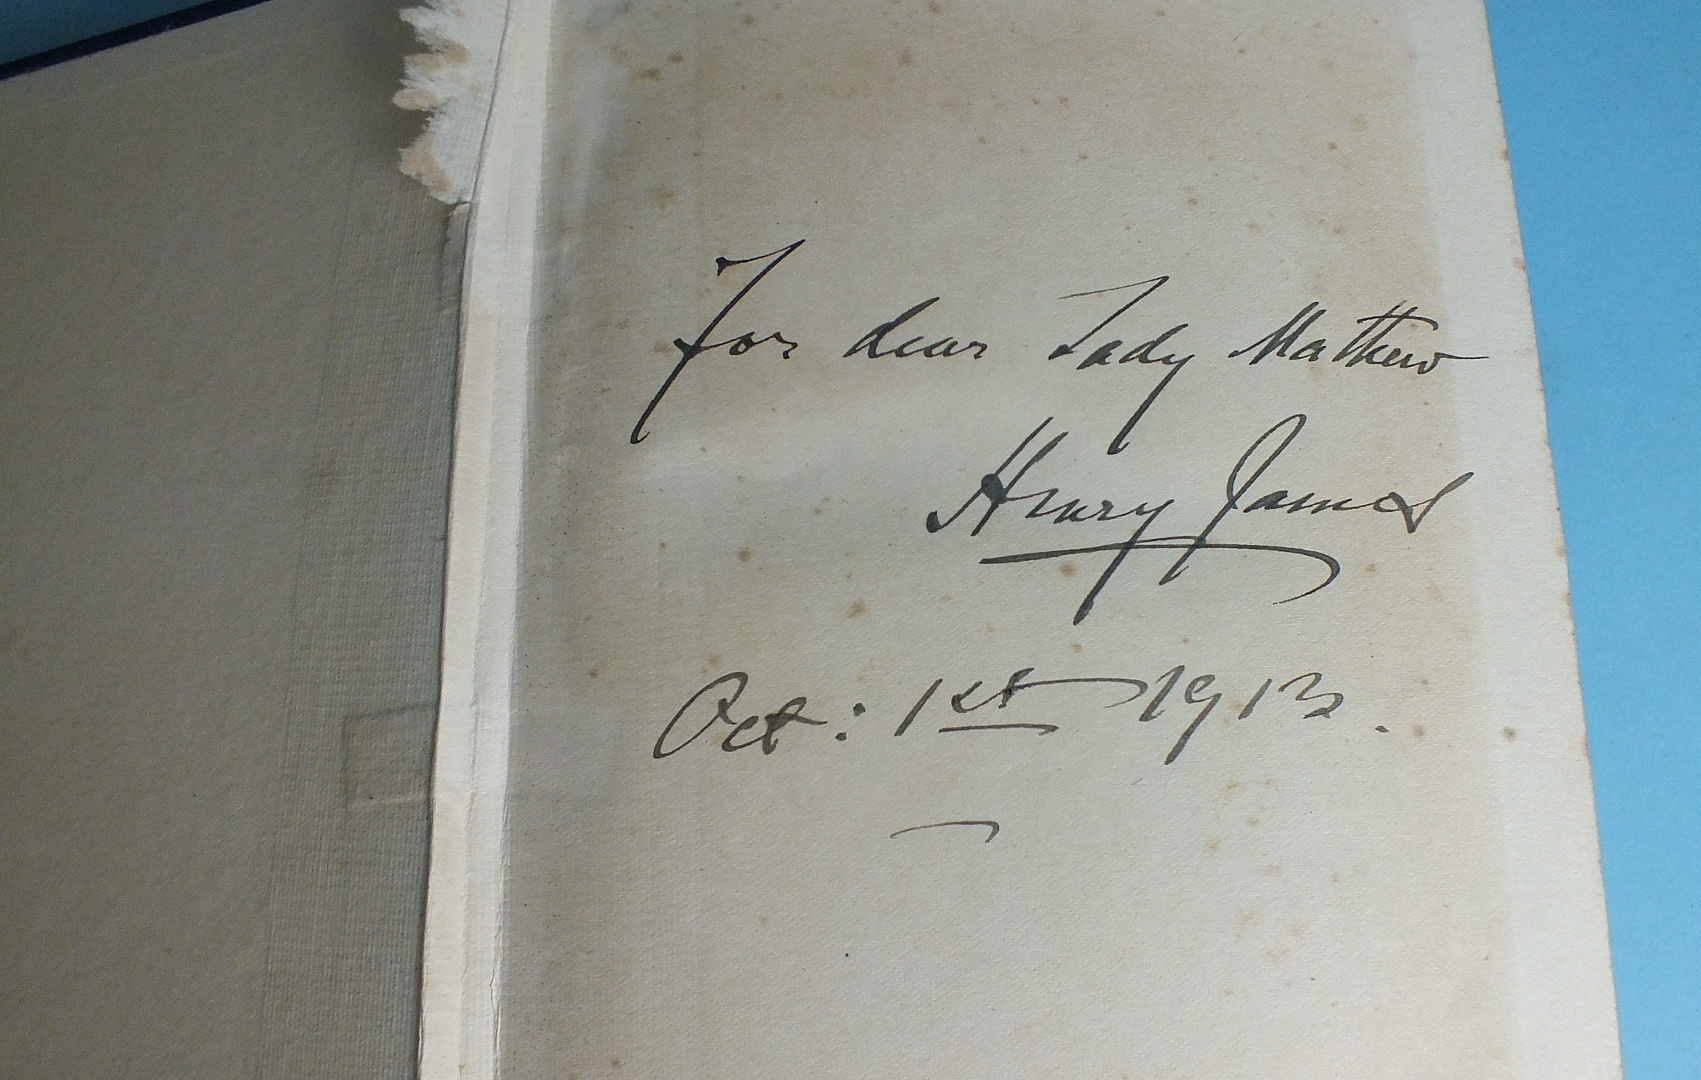 For dear Lady Mathew
Henry James
Oct: 1st 1913.